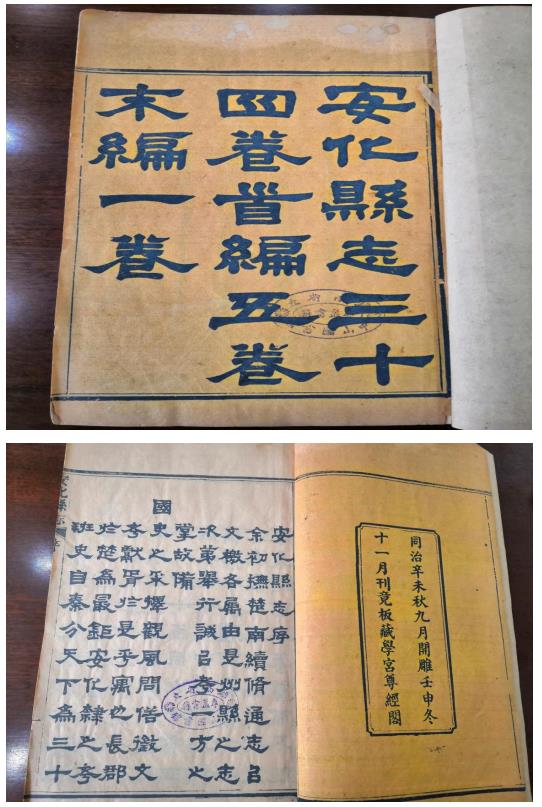 安化縣志三十
四卷首編五卷
末編一卷
同治辛未秋九月開雕壬申冬
十一月刊竟板藏學宮尊經閣
安化縣志序
余初撫楚南續脩通志㠯
文檄各屬由是州縣之志
次第舉行誠㠯考一方之
掌故備
國
史之采擇觀風問俗徵文
考獻胥於是乎寓也長郡
於楚為最鉅安化隸之考
班史自秦分天下為三十
安化縣志